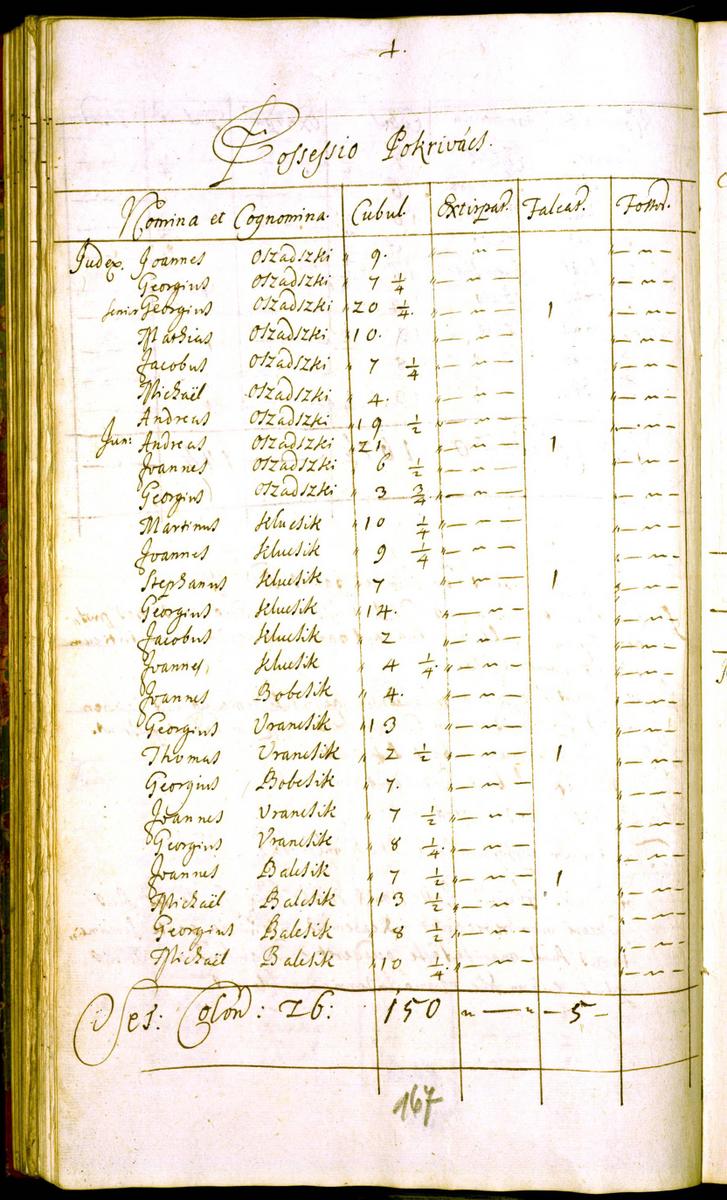 4.
Possessio Pokrivács.
Nomina et Cognomina. Cubul. Extirpat. Falcat.
Judex. Joannes Oszadszki " 9. "— " —
Georgius Oszadszki " 7 1/4 "— " —
senior Georgius Oszadszki " 20 1/4. "— " — 1 "— " —
Mathias Oszadszki " 10. "— " —
Jacobus Oszadszki " 7 1/4 "— " —
Michaël Oszadszki " 4. "— " —
Andreas Oszadszki " 19 1/2 "— " —
Jun: Andreas Oszadszki " 21 "— " — 1 "— " —
Joannes Oszadszki " 6 1/2 "— " —
Georgius Oszadszki " 3 3/4 "— " —
Martinus " 10 1/4 "— " —
Joannes " 9 1/4 "— " —
Stephanus " 7 "— " — 1 "— " —
Georgius " 14. "— " —
Jacobus " 2 "— " —
Joannes " 4 1/4 "— " —
Joannes Bobesik " 4. "— " —
Georgius Vrancsik " 13 "— " —
Thomas Vrancsik " 2 1/2 "— " — 1 "— " —
Georgius Bobesik " 7. "— " —
Joannes Vrancsik " 7 1/2 "— " —
Georgius Vrancsik " 8 1/4. "— " —
Joannes Balcsik " 7 1/2 "— " — 1 "— " —
Michaël Balcsik " 13 1/2 "— " —
Georgius Balcsik " 8 1/2 "— " —
Michaël Balcsik " 10 1/4 "— " —
Ses: Colon: 26: 150 "— " — 5 —
167